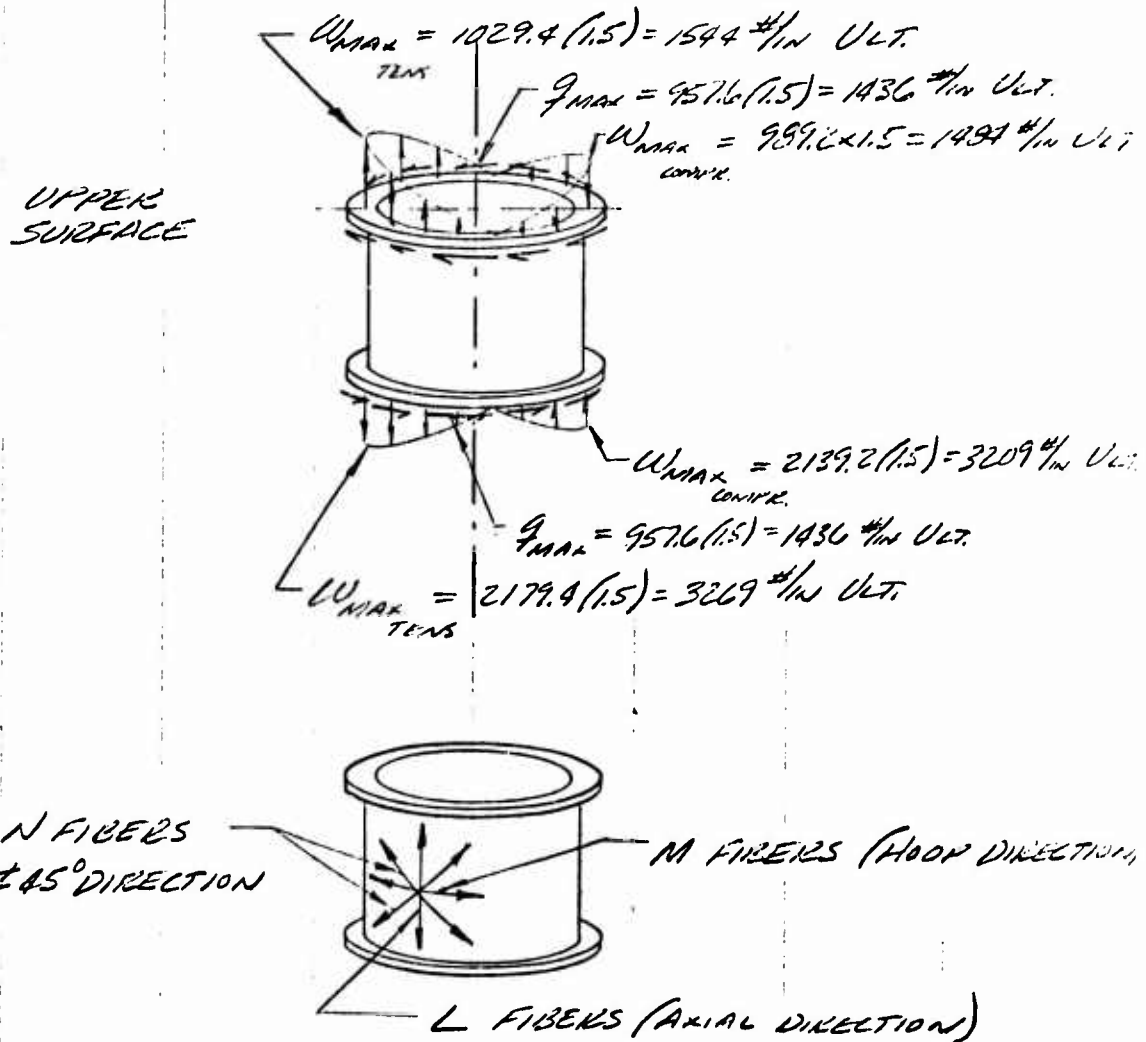 WMAX TENS = 1029.4 (1.5) = 1544 #/IN ULT.
qMAX = 957.6 (1.5) = 1436 #/IN ULT.
WMAX COMPR. = 989.2 x 1.5 = 1484 #/IN ULT
UPPER
SURFACE
WMAX COMPR. = 2139.2 (1.5) = 3209 #/IN ULT.
qMAX = 957.6 (1.5) = 1436 #/IN ULT.
WMAX TENS = 2179.4 (1.5) = 3269 #/IN ULT.
N FIBERS
±45° DIRECTION
M FIBERS (HOOP DIRECTION)
L FIBERS (AXIAL DIRECTION)